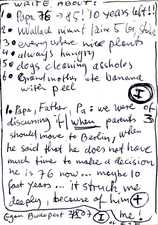 WRITE ABOUT:
1. Papa 76 → 85! 10 years left!!
2. Wallack
3. every where nice plants
4. always hungry
5. dogs cleaning assholes
6. Grandmother ate banana
with peel
I
1. Papa, Father, Pa: we were
discussing if/when parents
should move to Berlin, when
he said that he does not have
much time to make a decision
he is 76 now... maybe 10
fast years... it struck me
deeply, because of him +
Budapest
I me!